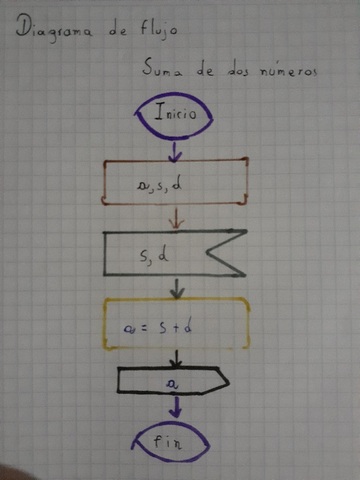 Diagrama de flujo
Suma de dos números
Inicio
a, s, d
s, d
a = s + d
a
fin